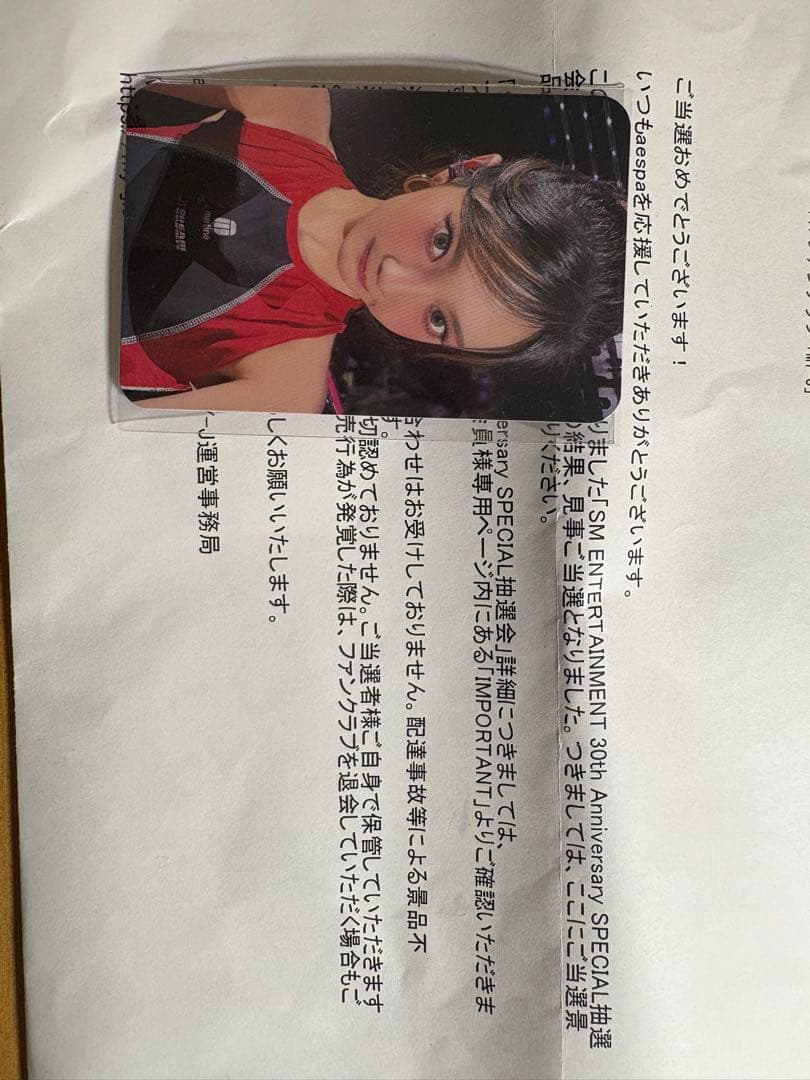 ご当選おめでとうございます！
いつもaespaを応援していただきありがとうございます。
こ
りました「SM ENTERTAINMENT 30th Anniversary SPECIAL抽選
会
の結果、見事ご当選となりました。つきましては、ここにご当選景
品
りください。
ersary SPECIAL抽選会」詳細につきましては、
員様専用ページ内にある「IMPORTANT」よりご確認いただきま
合わせはお受けしておりません。配達事故等による景品不
す。
切認めておりません。ご当選者様ご自身で保管していただきます
売行為が発覚した際は、ファンクラブを退会していただく場合もご
しくお願いいたします。
運営事務局
https:
mirtine
DREAM